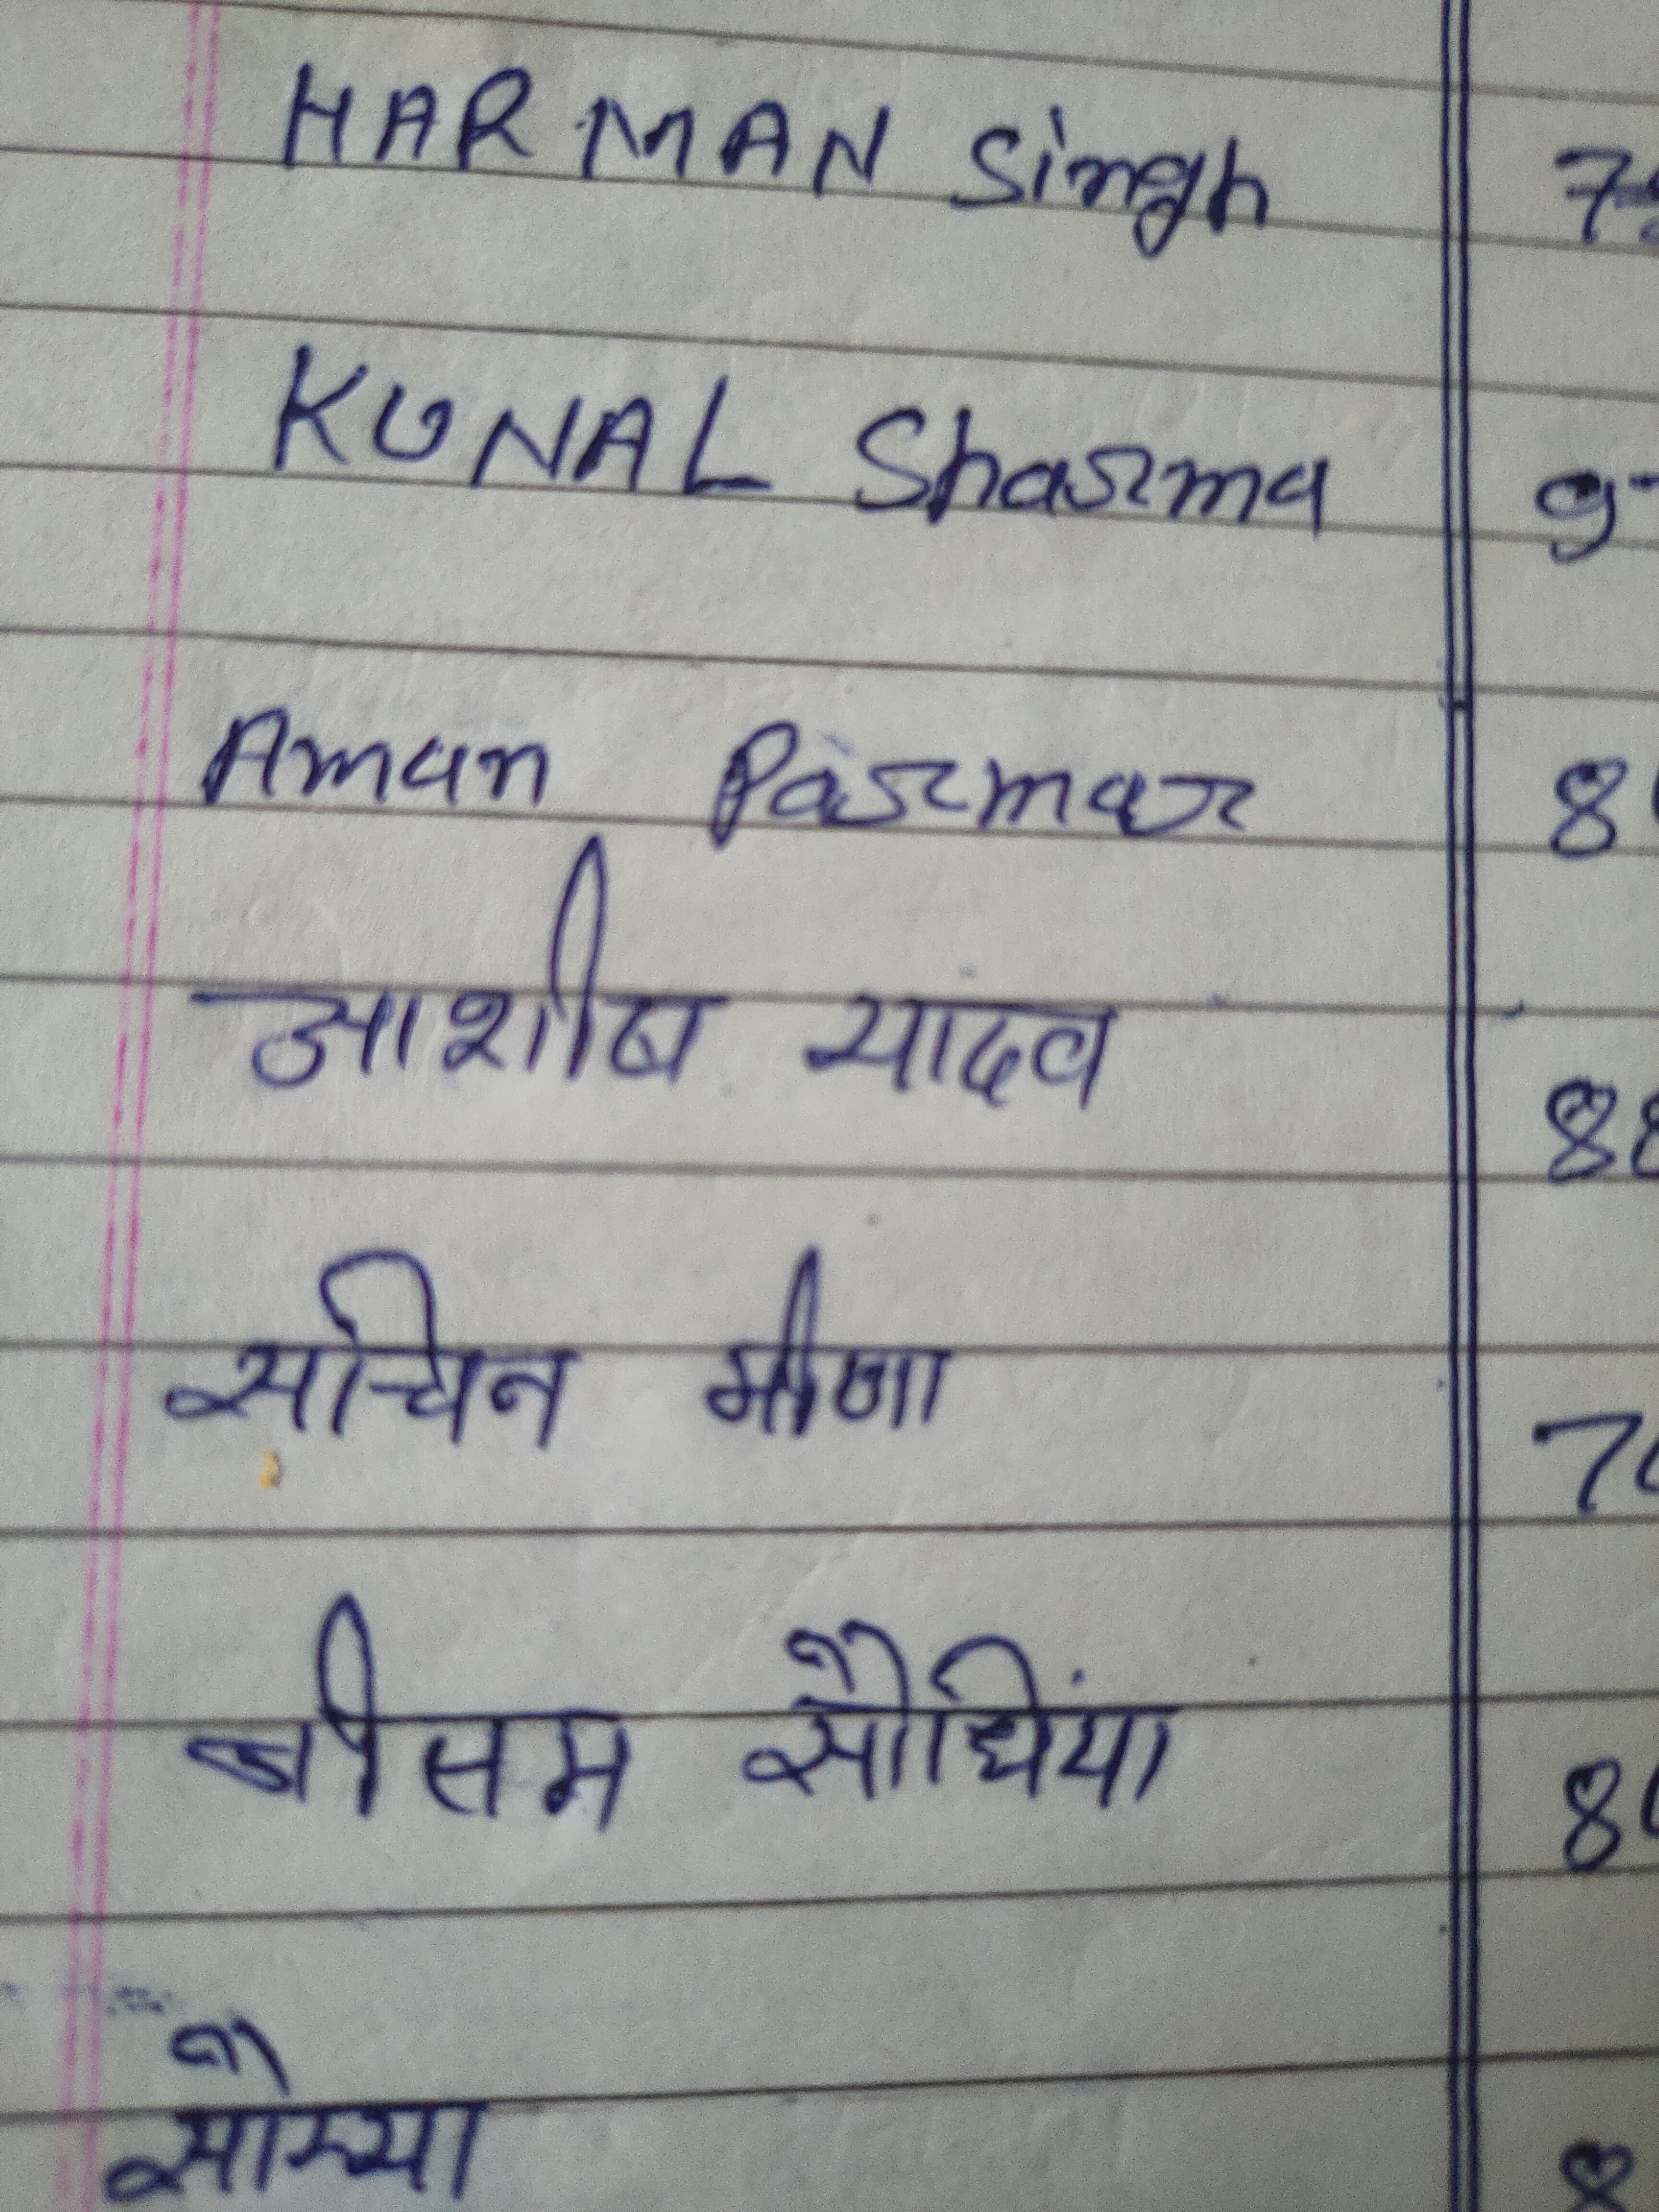 HARMAN Singh 7
KUNAL Sharma 9
Aman Parmar 8
आशीष यादव 88
सचिन मीणा 70
सौंधिंया 8
सौम्या 8